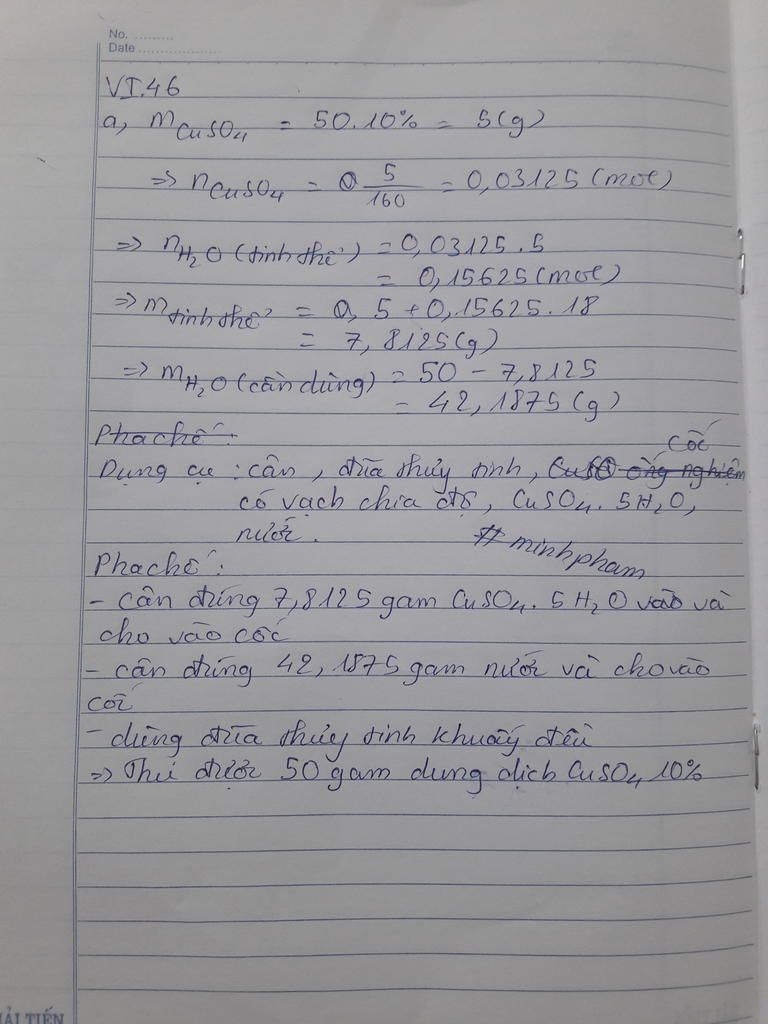 No. .........
Date ...................
VI.46
a, mCuSO4 = 50.10% = 5(g)
=> nCuSO4 = 5/160 = 0,03125 (mol)
=> nH2O (tinh thể) = 0,03125.5
= 0,15625 (mol)
=> mtinh thể = 5 + 0,15625.18
= 7,8125(g)
=> mH2O (cần dùng) = 50 - 7,8125
= 42,1875(g)
Pha chế:
cốc
Dụng cụ: cân, đũa thủy tinh, CuSO ống nghiệm
có vạch chia độ, CuSO4.5H2O,
nước.
# minhpham
Pha chế:
- cân đúng 7,8125 gam CuSO4.5H2O vào và
cho vào cốc
- cân đúng 42,1875 gam nước và cho vào
cốc
- dùng đũa thủy tinh khuấy đều
=> Thu được 50 gam dung dịch CuSO4 10%
ẢI TIẾN